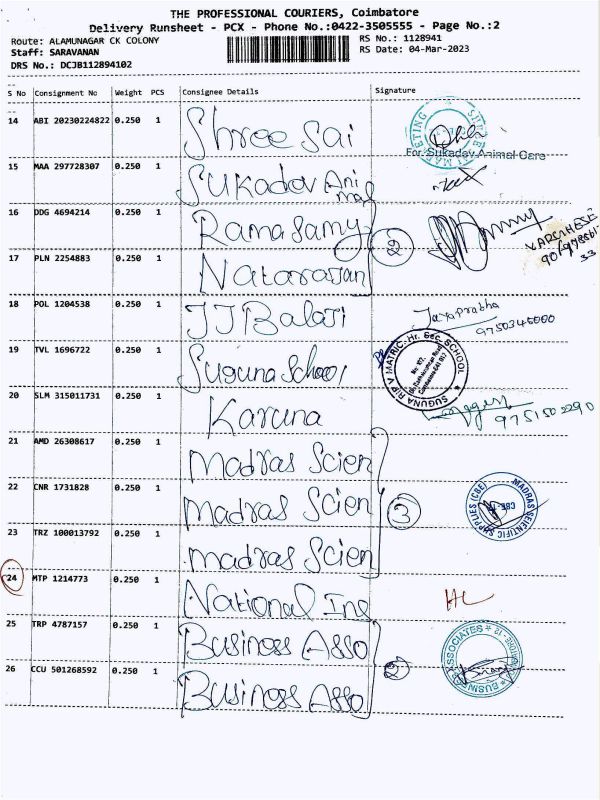 THE PROFESSIONAL COURIERS, Coimbatore
Delivery Runsheet - PCX - Phone No.:0422-3505555 - Page No.:2
Route: ALAMUNAGAR CK COLONY
RS No.: 1128941
Staff: SARAVANAN
RS Date: 04-Mar-2023
DRS No.: DCJB112894102
S No Consignment No Weight PCS Consignee Details Signature
14 ABI 20230224822 0.250 1 Shree Sai
For Sukadev Animal Care
15 MAA 297728307 0.250 1 Sukadev Animal
16 DDG 4694214 0.250 1 Ramasamy
2
VARGHESE
17 PLN 2254883 0.250 1 Natarajan
18 POL 1204538 0.250 1 JJ Balaji
Jayaprabha
9750345000
19 TVL 1696722 0.250 1 Suguna School
SUGUNA RIP V MATRIC. Hr. Sec. SCHOOL
20 SLM 315011731 0.250 1 Karuna
9751502290
21 AMD 26308617 0.250 1 Madras Scien
22 CNR 1731828 0.250 1 Madras Scien
3
MADRAS SCIENTIFIC SUPPLIES (CBE)
23 TRZ 100013792 0.250 1 Madras Scien
24 MTP 1214773 0.250 1 National Ine
25 TRP 4787157 0.250 1 Business Asso
2
BUSINESS ASSOCIATES
26 CCU 501268592 0.250 1 Business Asso